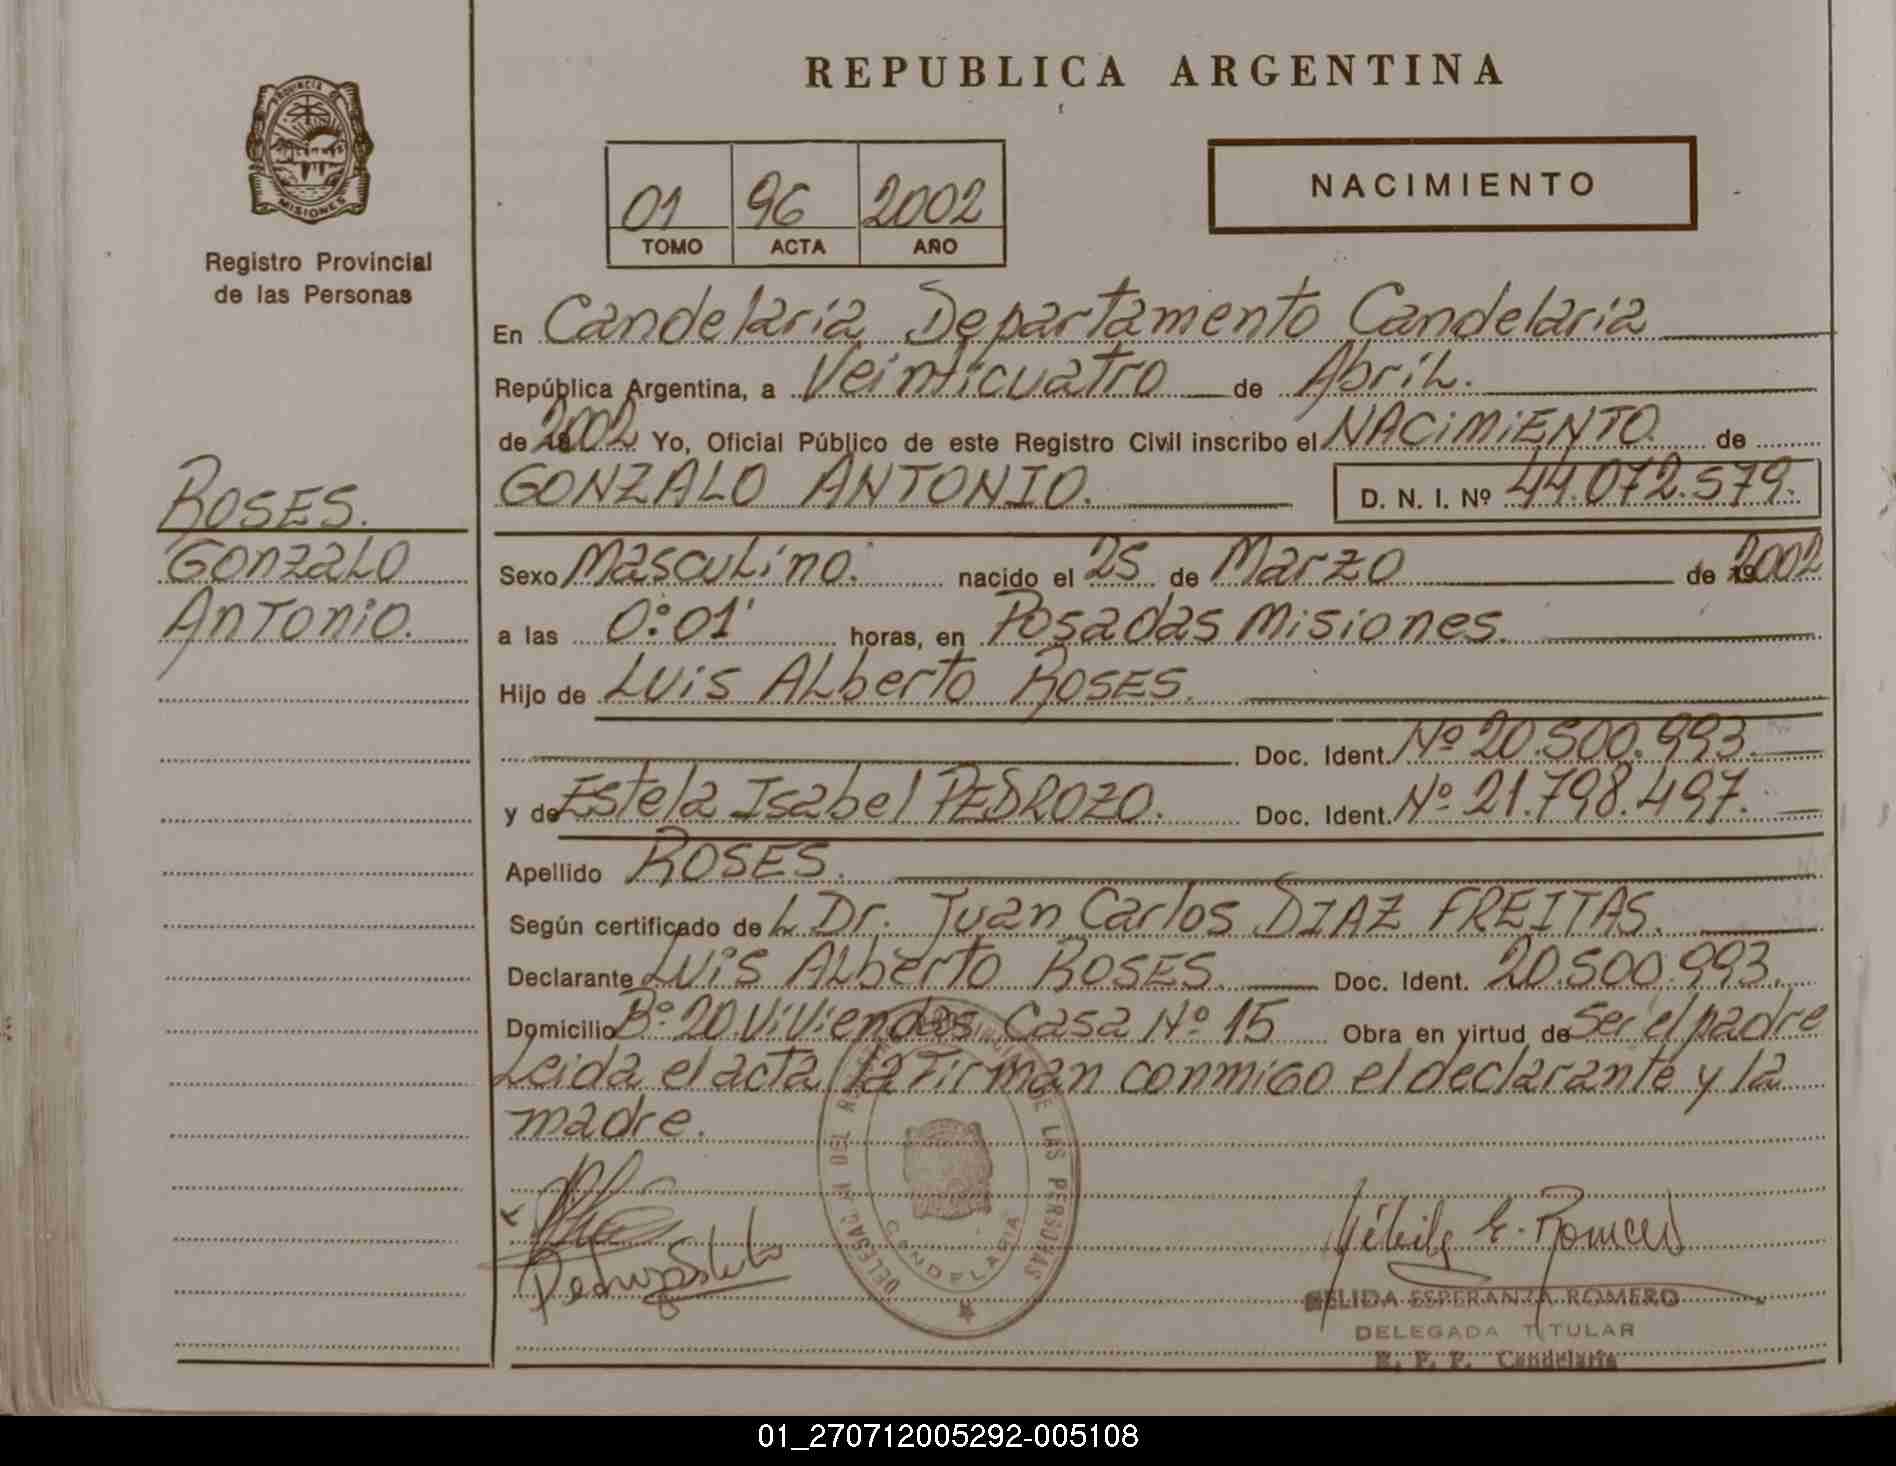 REPUBLICA ARGENTINA
PROVINCIA DE
MISIONES
Registro Provincial
de las Personas
01 96 2002
TOMO ACTA AÑO
NACIMIENTO
En Candelaria Departamento Candelaria
República Argentina, a Veinticuatro de Abril.
de 2002 Yo, Oficial Público de este Registro Civil inscribo el NACIMIENTO de
ROSES.
Gonzalo
Antonio.
GONZALO ANTONIO. D. N. I. Nº 44.072.579.
Sexo Masculino. nacido el 25 de Marzo de 2002
a las 0:01' horas, en Posadas Misiones.
Hijo de Luis Alberto ROSES.
Doc. Ident. Nº 20.500.993.
y de Estela Isabel PEDROZO. Doc. Ident. Nº 21.798.497.
Apellido ROSES.
Según certificado del Dr. Juan Carlos DIAZ FREITAS.
Declarante Luis Alberto ROSES. Doc. Ident. 20.500.993.
Domicilio Bº 20 Viviendas Casa Nº 15 Obra en virtud de ser el padre
Leida el acta la firman conmigo el declarante y la
madre.
CANDELARIA
DE LAS PERSONAS
NELIDA ESPERANZA ROMERO
DELEGADA TITULAR
R. P. P. Candelaria
01_270712005292-005108